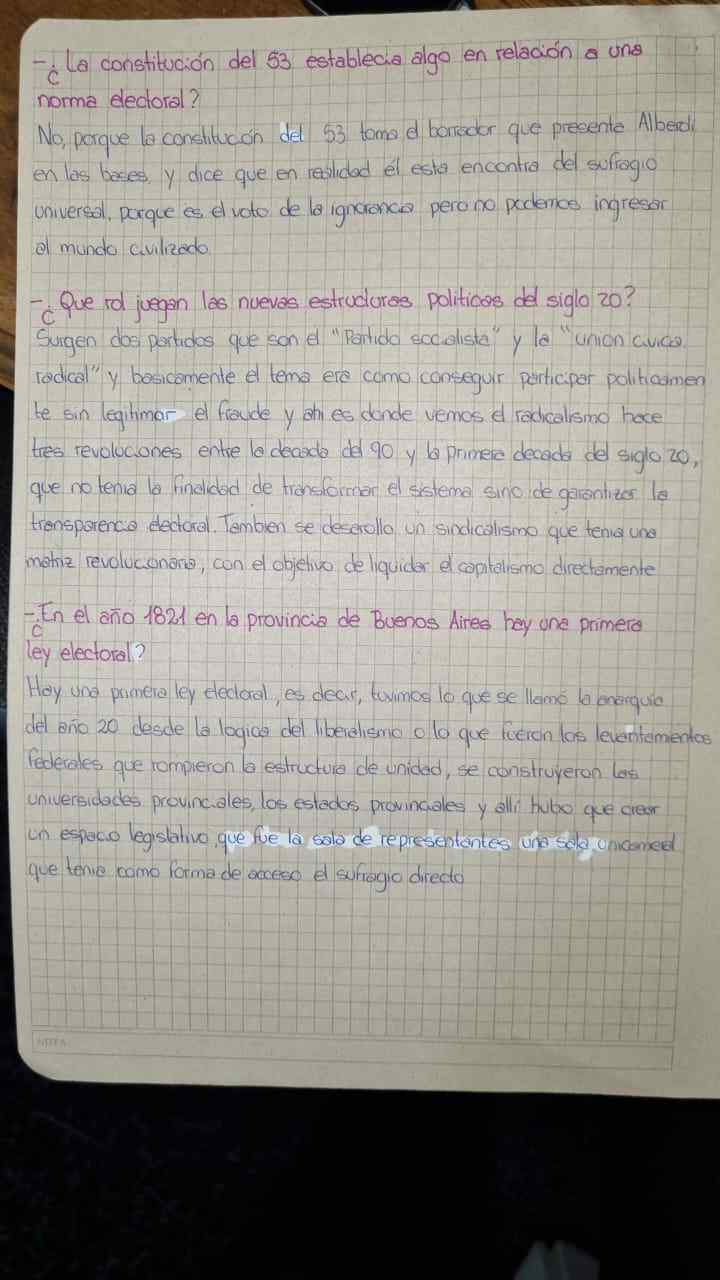 - ¿ La constitución del 53 establecia algo en relación a una
norma electoral?
No, porque la constitución del 53 toma el borrador que presenta Alberdi
en las bases, y dice que en realidad él esta encontra del sufragio
universal, porque es el voto de la ignorancia pero no podemos ingresar
al mundo civilizado.
- ¿ Que rol juegan las nuevas estructuras politicas del siglo 20?
Surgen dos partidos que son el "Partido socialista" y la "union civica
radical" y basicamente el tema era como conseguir participar politicamen
te sin legitimar el fraude y ahi es donde vemos el radicalismo hace
tres revoluciones entre la decada del 90 y la primera decada del siglo 20,
que no tenia la finalidad de transformar el sistema sino de garantizar la
transparencia electoral. Tambien se desarollo un sindicalismo que tenia una
matriz revolucionaria, con el objetivo de liquidar el capitalismo directamente
- ¿ En el año 1821 en la provincia de Buenos Aires hay una primera
ley electoral?
Hay una primera ley electoral, es decir, tuvimos lo que se llamó la anarquia
del año 20 desde la logica del liberalismo o lo que fueron los levantamientos
federales que rompieron la estructura de unidad, se construyeron las
universidades provinciales, los estados provinciales y allí hubo que crear
un espacio legislativo, que fue la sala de representantes una sola unicameral
que tenia como forma de acceso el sufragio directo
NOTA